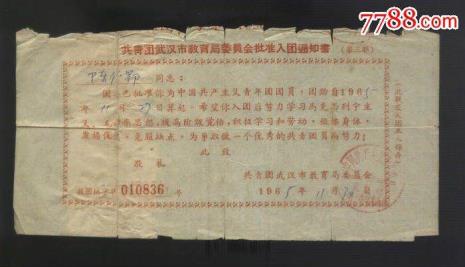 7788.com
共青团武汉市教育局委員会批准入团通知書
(第三联)
同志:
团 已批准你为中国共产主义青年团团员,团龄自1965
年11月27日算起。希望你入团后努力学习馬克思列宁主
义、毛 思想,提高阶級覚悟,积极学习和劳动,鍛煉身体,
发揚优点,克服缺点,为爭取做一个优秀的共青团員而努力!
此致
敬礼
共青团武汉市教育局委員会
1965年11月 日
010836 号